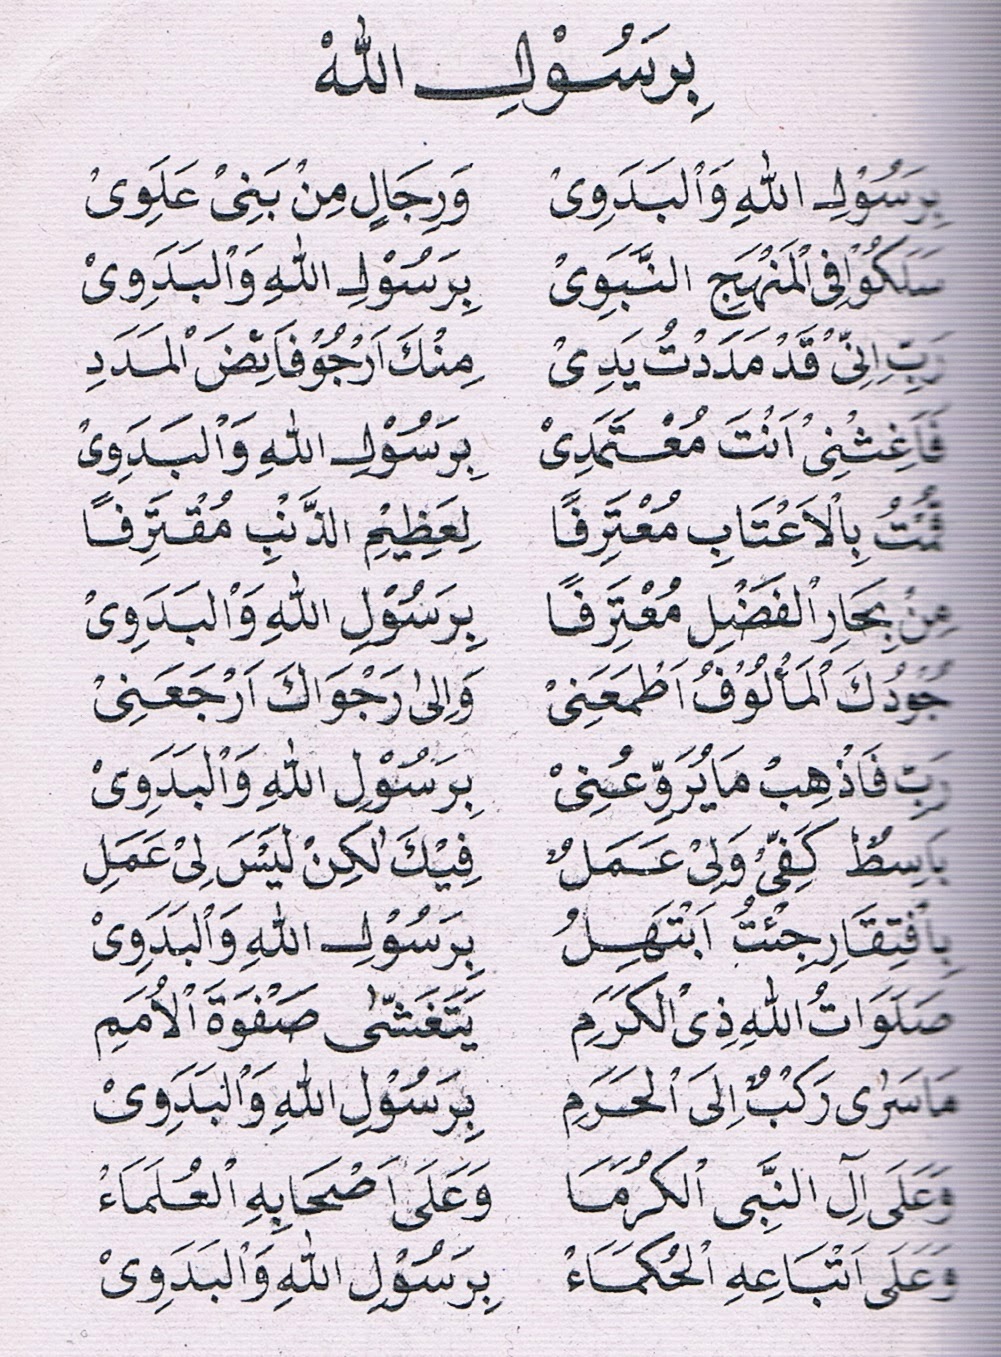 بِرَسُوْلِ اللهْ
بِرَسُوْلِ اللهِ وَالْبَدَوِىْ وَرِجَالٍ مِنْ بَنِىْ عَلَوِىْ
سَلَكُوْا فِى الْمَنْهَجِ النَّبَوِىْ بِرَسُوْلِ اللهِ وَالْبَدَوِىْ
رَبِّ اِنِّىْ قَدْ مَدَدْتُ يَدِىْ مِنْكَ اَرْجُوْ فَائِضَ الْمَدَدِ
فَاَغِثْنِىْ اَنْتَ مُعْتَمَدِىْ بِرَسُوْلِ اللهِ وَالْبَدَوِىْ
قُمْتُ بِالْاَعْتَابِ مُعْتَرِفًا لِعَظِيْمِ الذَّنْبِ مُقْتَرِفًا
مِنْ بِحَارِ الْفَضْلِ مُغْتَرِفًا بِرَسُوْلِ اللهِ وَالْبَدَوِىْ
جُوْدُكَ الْمَأْلُوْفُ اَطْمَعَنِىْ وَاِلىٰ رَجْوَاكَ اَرْجَعَنِىْ
رَبِّ فَاذْهِبْ مَا يُرَوِّعُنِىْ بِرَسُوْلِ اللهِ وَالْبَدَوِىْ
بَاسِطٌ كَفِّىْ وَلِىْ عَمَلٌ فِيْكَ لٰكِنْ لَيْسَ لِىْ عَمَلِ
بِافْتِقَارِ جِئْتُ اَبْتَهِلُ بِرَسُوْلِ اللهِ وَالْبَدَوِىْ
صَلَوَاتُ اللهِ ذِى الْكَرَمِ يَتَغَشّٰى صَفْوَةَ الْاُمَمِ
مَا سَرٰى رَكْبٌ اِلَى الْحَرَمِ بِرَسُوْلِ اللهِ وَالْبَدَوِىْ
وَعَلَى آلِ النَّبِى الْكُرَمَا وَعَلَى اَصْحَابِهِ الْعُلَمَاءْ
وَعَلَى اَتْبَاعِهِ الْحُكَمَاءْ بِرَسُوْلِ اللهِ وَالْبَدَوِىْ